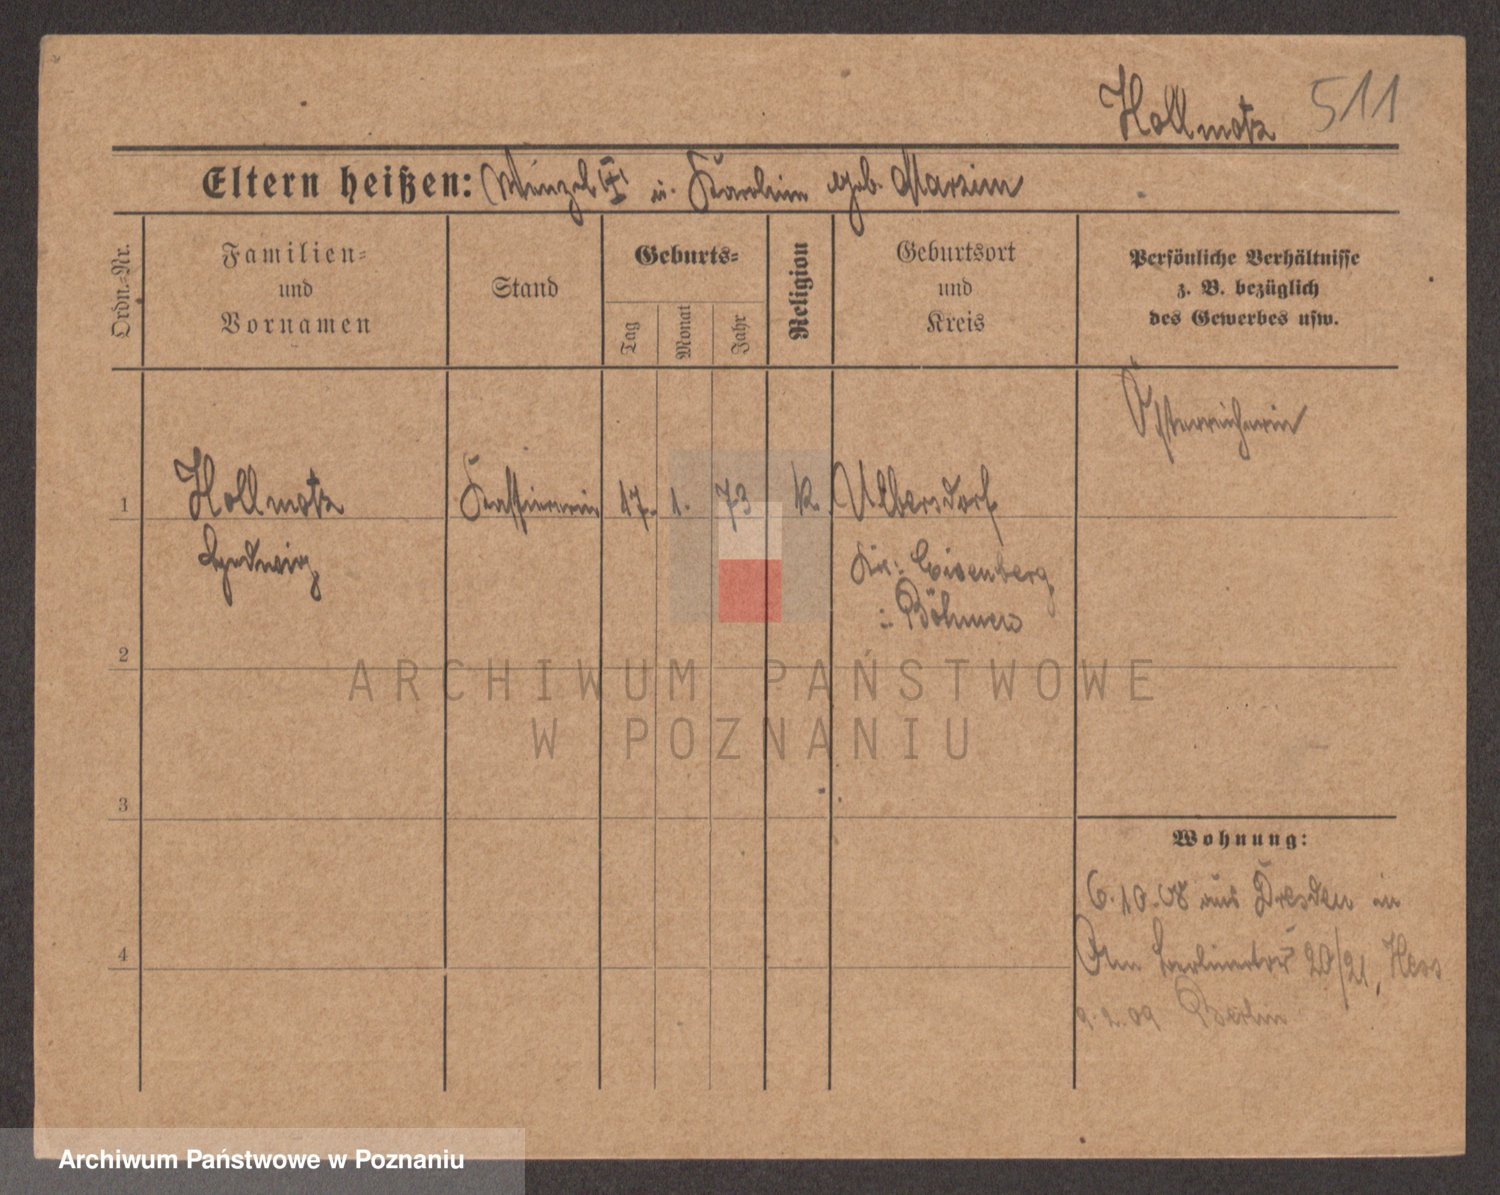 Hollmotz 511
Eltern heißen: Wenzel u. Karolina geb.
Ordn.-Nr.
Familien-
und
Vornamen
Stand
Geburts-
Tag
Monat
Jahr
Religion
Geburtsort
und
Kreis
Persönliche Verhältnisse
z. B. bezüglich
des Gewerbes usw.
Österreicherin
1 Hollmotz Kassiererin 17. 1. 73 k. Ulbersdorf
Hedwig Kr: Eisenberg
i: Böhmen
2
ARCHIWUM PAŃSTWOWE
W POZNANIU
3
Wohnung:
6.10.08 aus Dresden in
4
Am Berlinertor 20/21, Hess
9.2.09 Berlin
Archiwum Państwowe w Poznaniu